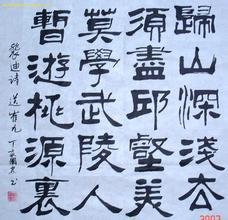 歸山深淺去
須盡邱壑美
莫學武陵人
暫游桃源裏
裴迪诗 送崔九 丁